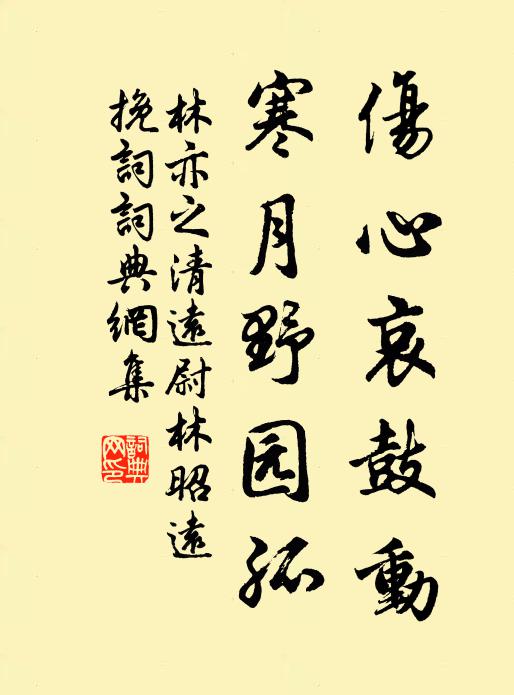 傷心哀鼓動
寒月野园孤
林亦之清遠尉林昭遠
挽詞詞典網集
詞典
网印